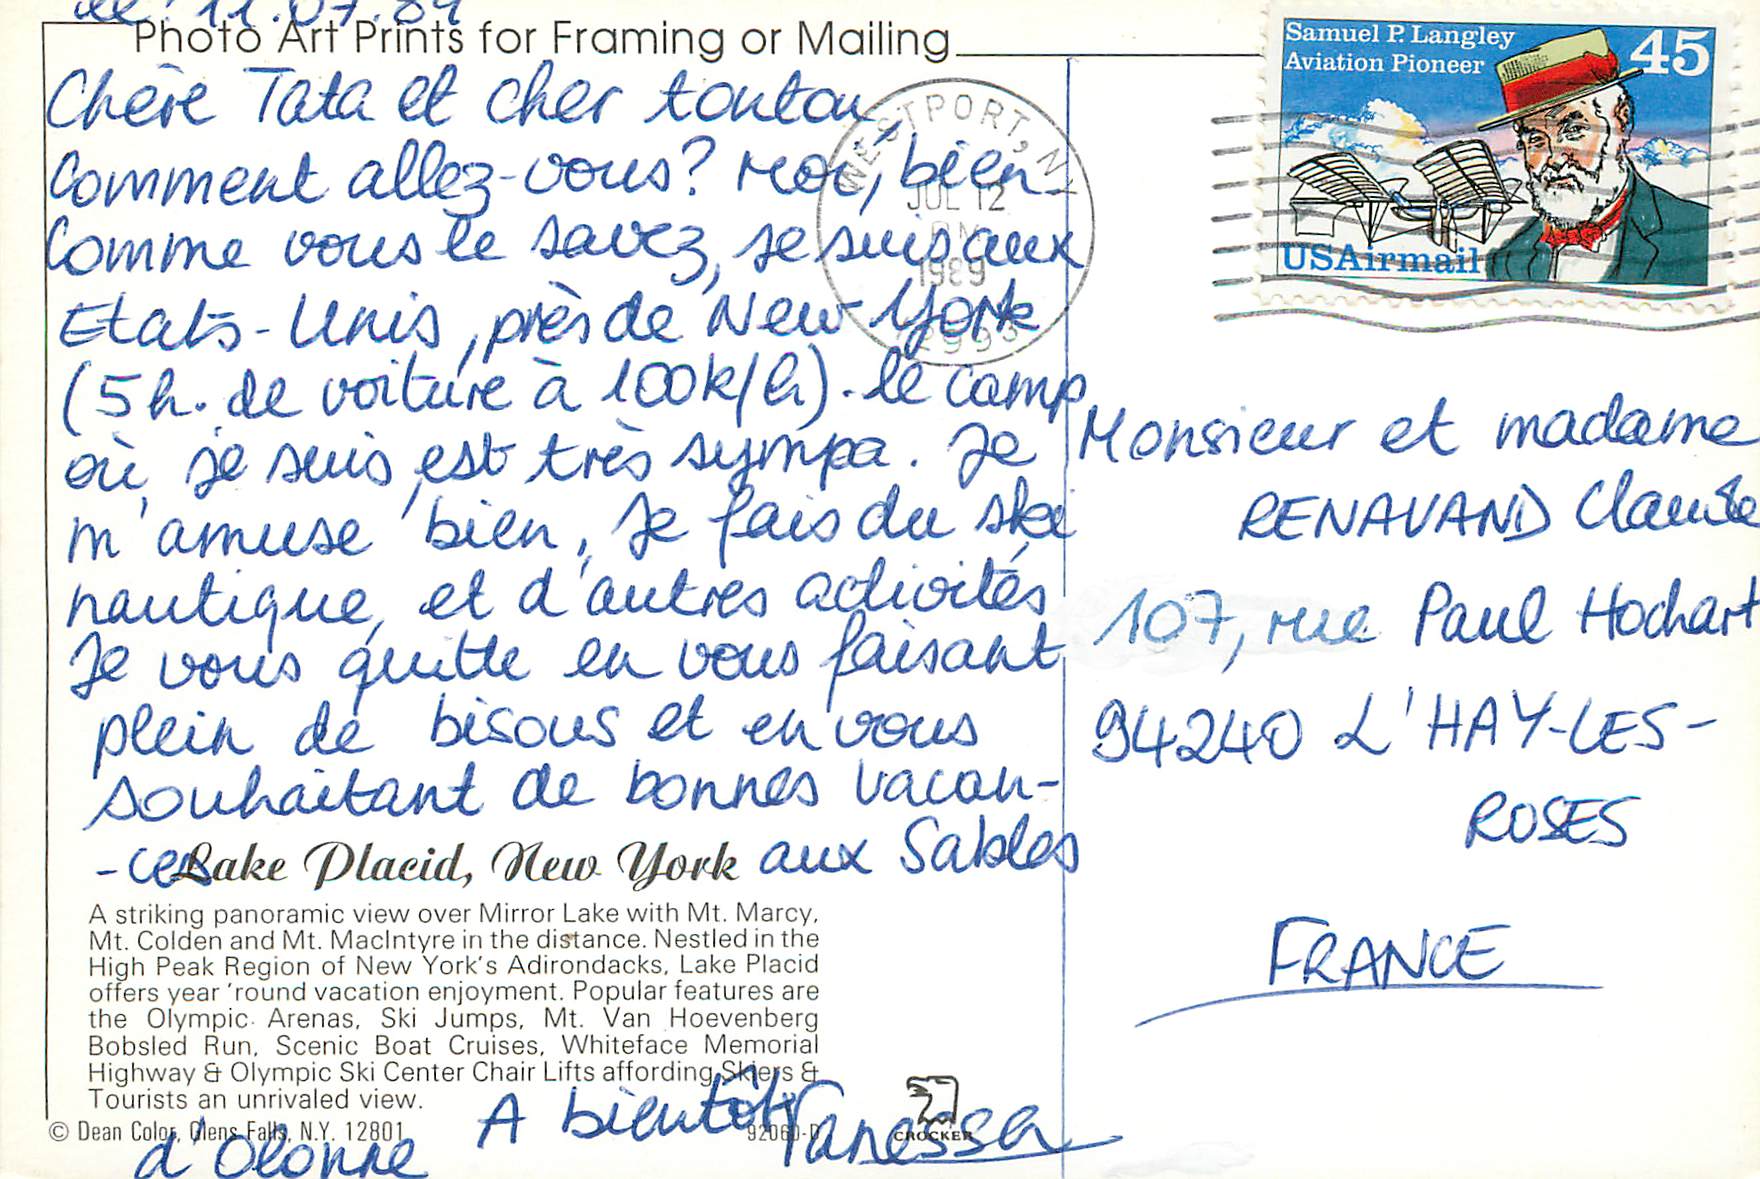 le 11.07.89
Photo Art Prints for Framing or Mailing
Chère Tata et cher tonton,
Comment allez-vous? Moi, bien.
Comme vous le savez, je suis aux
Etats-Unis, près de New-York
(5h. de voiture à 100k/h). le camp
où je suis est très sympa. Je
m'amuse bien, Je fais du ski
nautique, et d'autres activités
Je vous quitte en vous faisant
plein de bisous et en vous
souhaitant de bonnes vacan-
-ces aux Sables
d'Olonne
A bientôt Vanessa
Lake Placid, New York
A striking panoramic view over Mirror Lake with Mt. Marcy,
Mt. Colden and Mt. MacIntyre in the distance. Nestled in the
High Peak Region of New York's Adirondacks, Lake Placid
offers year 'round vacation enjoyment. Popular features are
the Olympic Arenas, Ski Jumps, Mt. Van Hoevenberg
Bobsled Run, Scenic Boat Cruises, Whiteface Memorial
Highway & Olympic Ski Center Chair Lifts affording Skiers &
Tourists an unrivaled view.
© Dean Color, Glens Falls, N.Y. 12801
92060-D
CROCKER
WESTPORT, N
JUL 12
PM
1989
12993
Samuel P. Langley
Aviation Pioneer
45
USAirmail
Monsieur et madame
RENAVAND Claude
107, rue Paul Hochart
94240 L'HAY-LES-
ROSES
FRANCE